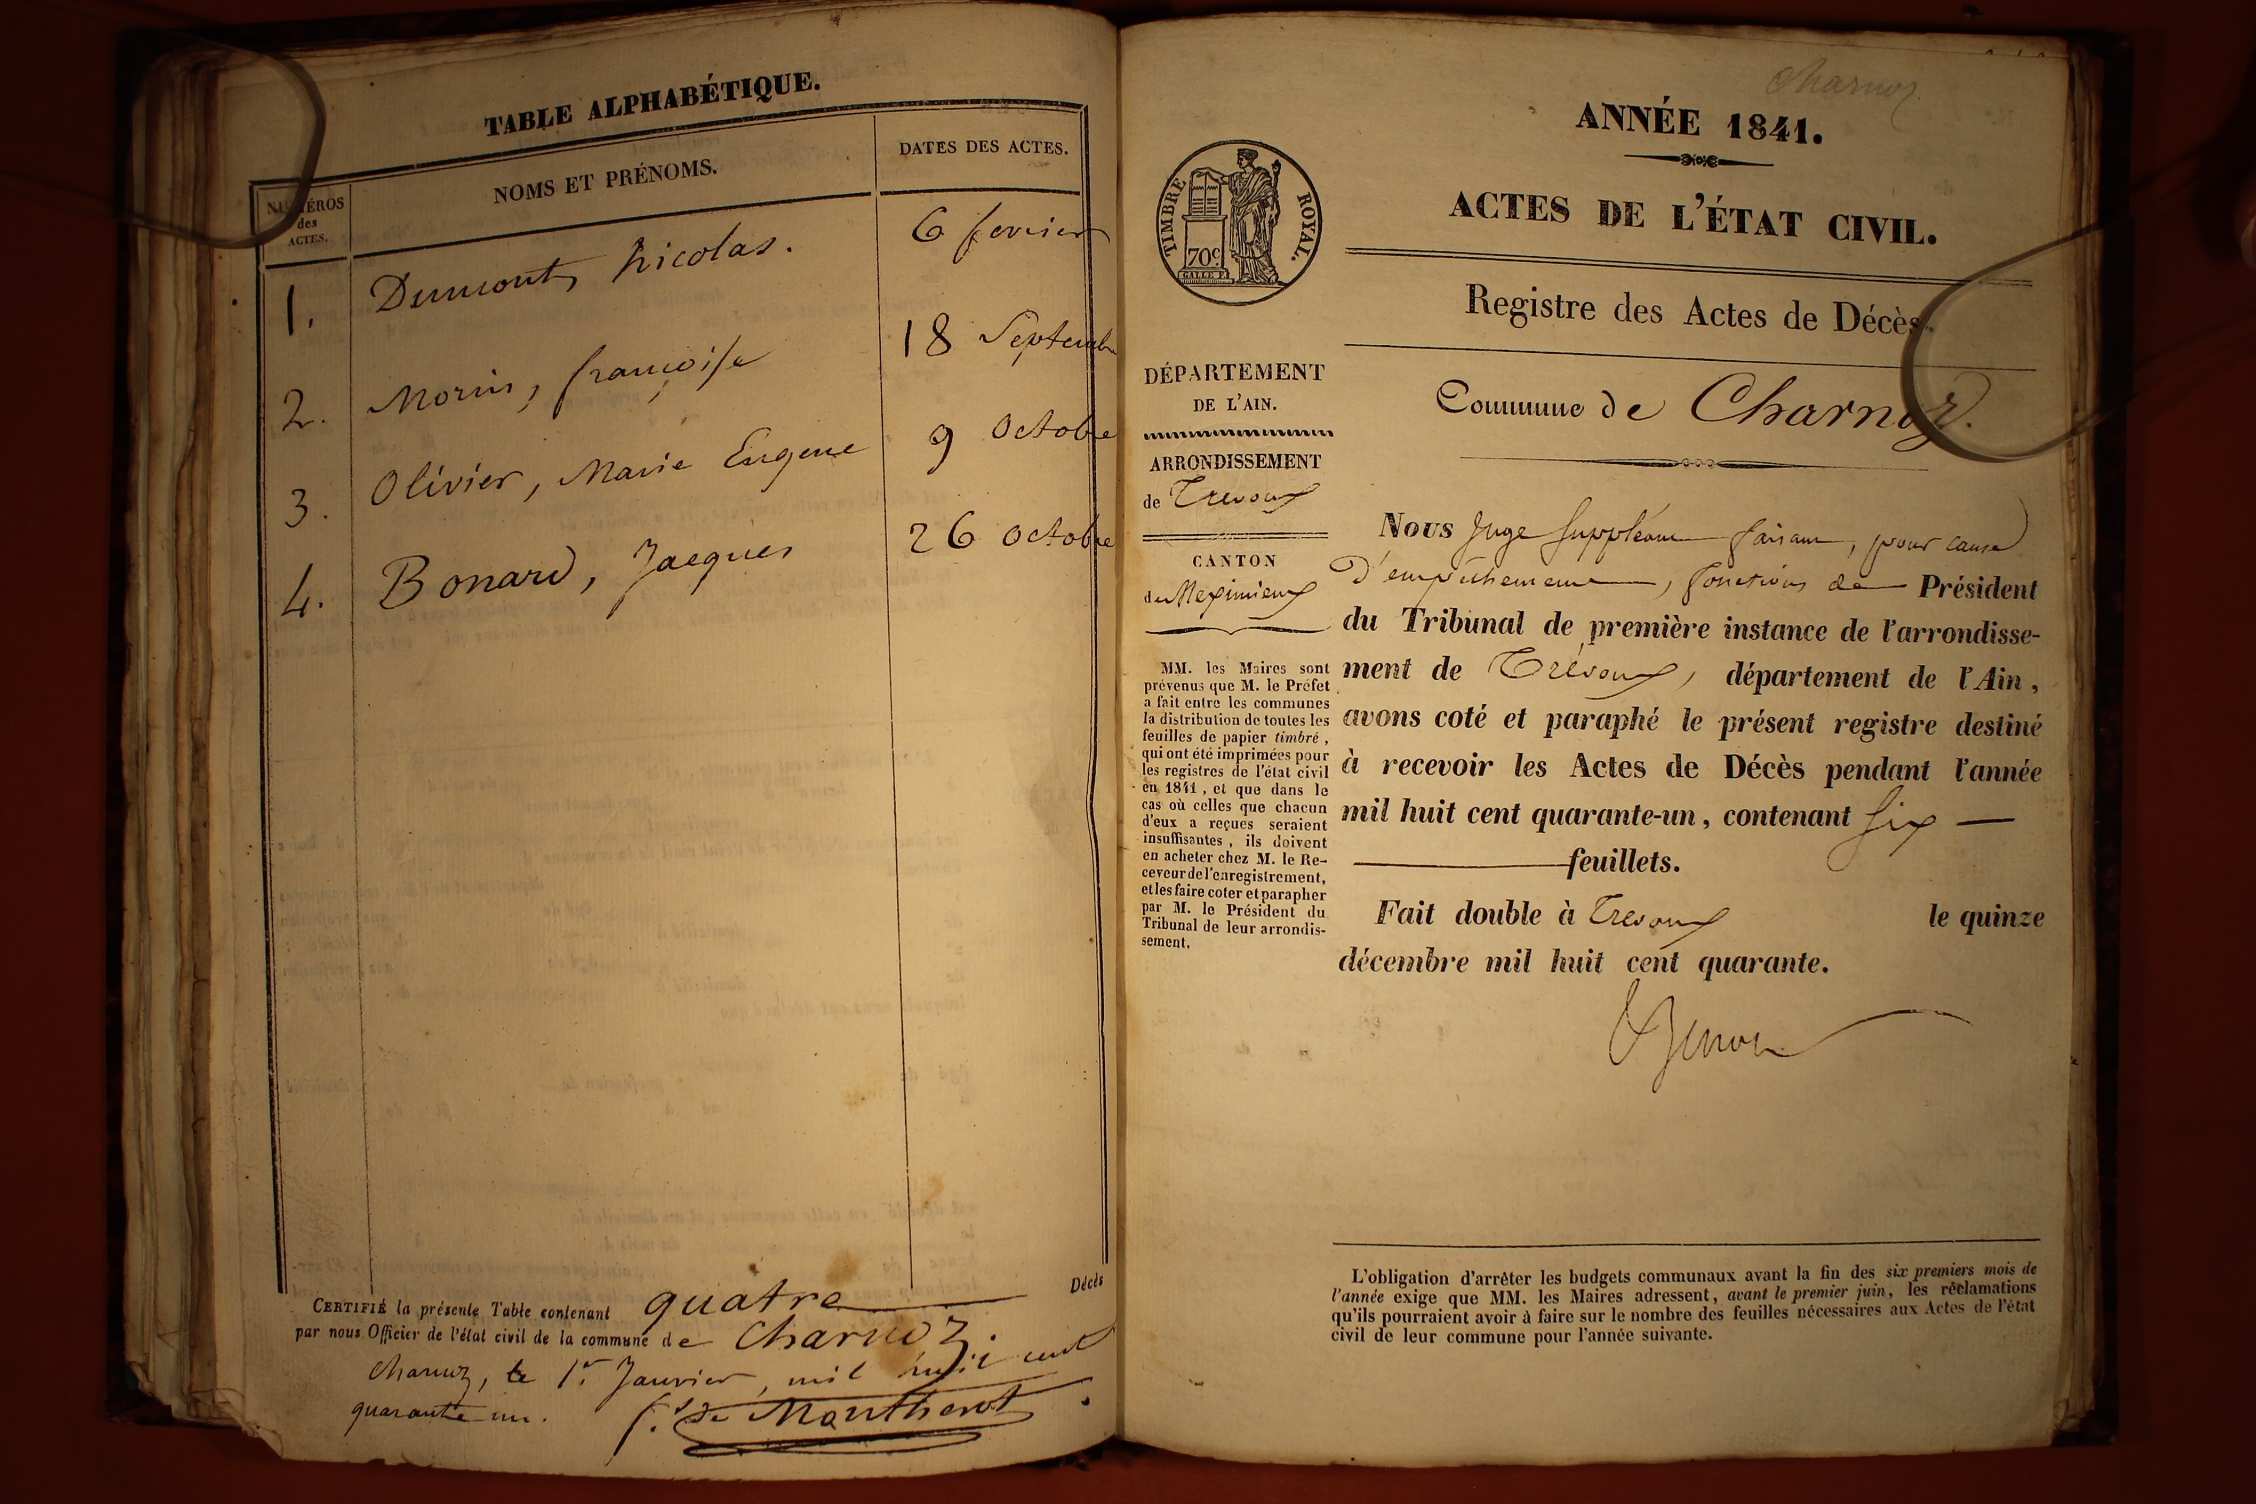 TABLE ALPHABÉTIQUE.
NUMÉROS
des
ACTES.
NOMS ET PRÉNOMS.
DATES DES ACTES.
1. Dumont, Nicolas. 6 fevrier
2. Morin, françoise 18 Septembre
3. Olivier, Marie Eugene 9 Octobre
4. Bonard, Jacques 26 Octobre
CERTIFIÉ la présente Table contenant quatre Décès
par nous Officier de l'état civil de la commune de Charnoz.
Charnoz, le 1.er Janvier, mil huit cent
quarante un. f. de Montherot
Charnoz
ANNÉE 1841.
ACTES DE L'ÉTAT CIVIL.
TIMBRE ROYAL.
70c.
Registre des Actes de Décès.
Commune de Charnoz.
DÉPARTEMENT
DE L'AIN.
ARRONDISSEMENT
de Trevoux
CANTON
de Meximieux
MM. les Maires sont
prévenus que M. le Préfet
a fait entre les communes
la distribution de toutes les
feuilles de papier timbré,
qui ont été imprimées pour
les registres de l'état civil
en 1841, et que dans le
cas où celles que chacun
d'eux a reçues seraient
insuffisantes, ils doivent
en acheter chez M. le Re-
ceveur de l'enregistrement,
et les faire coter et parapher
par M. le Président du
Tribunal de leur arrondis-
sement.
Nous Juge Suppléant faisant, pour cause
D'empêchement, fonctions de Président
du Tribunal de première instance de l'arrondisse-
ment de Trévoux, département de l'Ain,
avons coté et paraphé le présent registre destiné
à recevoir les Actes de Décès pendant l'année
mil huit cent quarante-un, contenant six
feuillets.
Fait double à Trevoux le quinze
décembre mil huit cent quarante.
L'obligation d'arrêter les budgets communaux avant la fin des six premiers mois de
l'année exige que MM. les Maires adressent, avant le premier juin, les réclamations
qu'ils pourraient avoir à faire sur le nombre des feuilles nécessaires aux Actes de l'état
civil de leur commune pour l'année suivante.